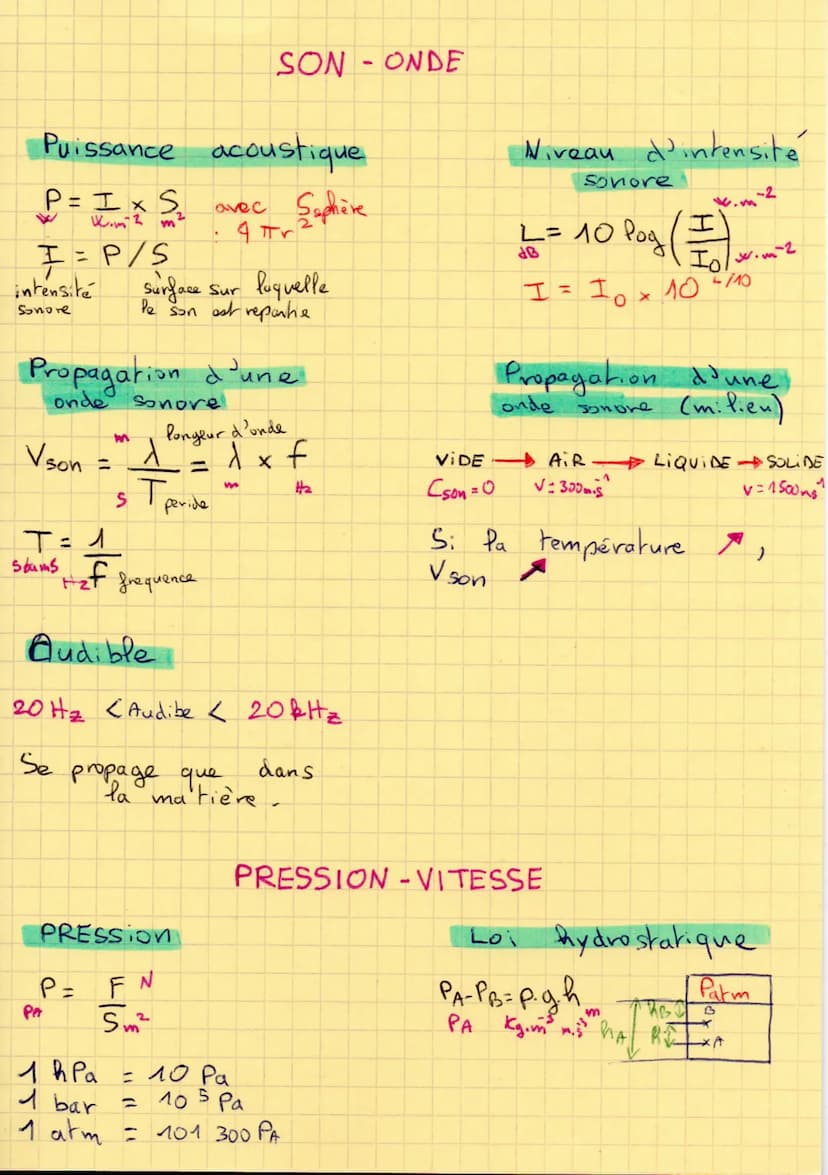 SON - ONDE
Puissance acoustique
P = I x S avec Ssphère
W W.m⁻² m² : 4 πr²
I = P/S
intensité sonore
surface sur luquelle
le son est repartie
Niveau d'intensité
sonore
W.m⁻²
L = 10 log (I/I₀)
dB W.m⁻²
I = I₀ x 10^L/10
Propagation d'une
onde sonore
m longeur d'onde
Vson = λ/T = λ x f
s peride m Hz
T = 1/f
s ou ms Hz frequence
Propagation d'une
onde sonore (milieu)
ViDE → AiR → LiQUiDE → SOLiDE
Cson = 0 V = 300m.s⁻¹ V = 1500ms⁻¹
Si la température ↗,
Vson ↗
Audible
20 Hz < Audibe < 20 kHz
Se propage que dans
la matière.
PRESSION - VITESSE
PRESSiON
P = F/S
PA N m²
1 hPa = 10 Pa
1 bar = 10⁵ Pa
1 atm = 101 300 PA
Loi hydrostatique
PA-PB = ρ.g.h
PA Kg.m⁻³ m
Patm
hB B
hA h A